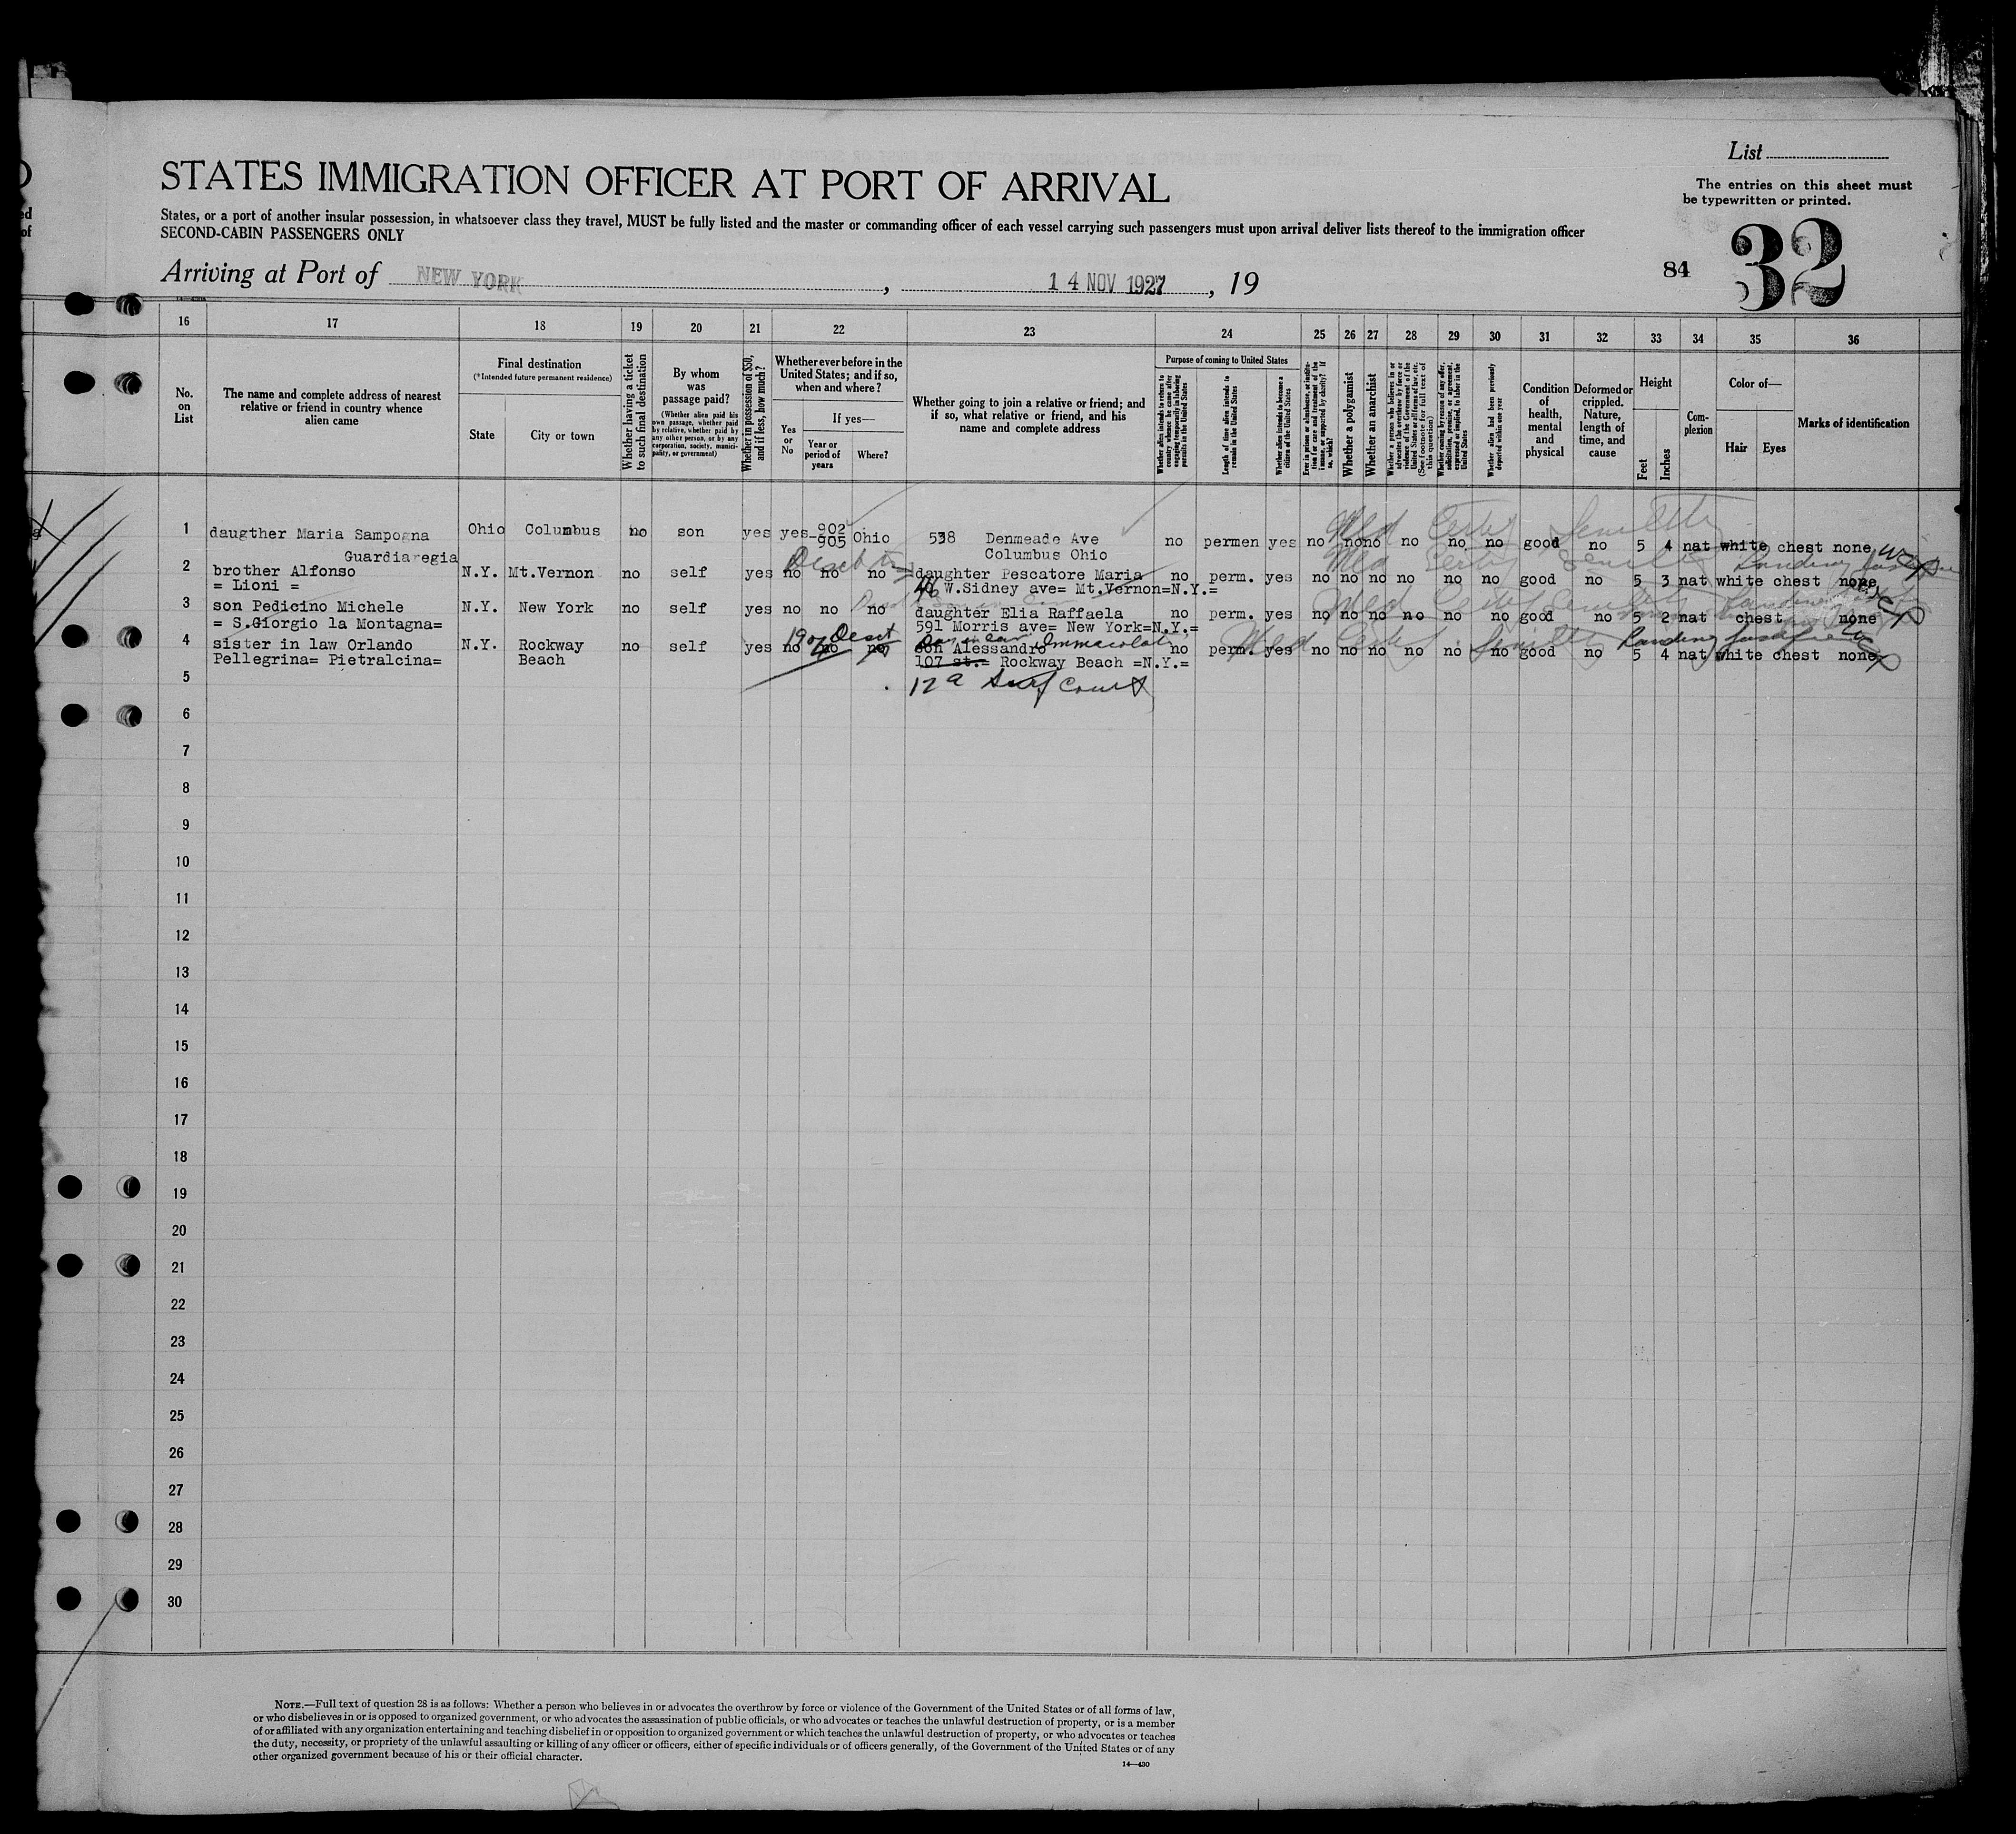 List
The entries on this sheet must
be typewritten or printed.
STATES IMMIGRATION OFFICER AT PORT OF ARRIVAL
States, or a port of another insular possession, in whatsoever class they travel, MUST be fully listed and the master or commanding officer of each vessel carrying such passengers must upon arrival deliver lists thereof to the immigration officer
SECOND-CABIN PASSENGERS ONLY
Arriving at Port of NEW YORK, 14 NOV 1927, 19
84 32
16 17 18 19 20 21 22 23 24 25 26 27 28 29 30 31 32 33 34 35 36
No. on List
The name and complete address of nearest relative or friend in country whence alien came
Final destination
(*Intended future permanent residence)
State
City or town
Whether having a ticket to such final destination
By whom was passage paid?
(Whether alien paid his own passage, whether paid by relative, whether paid by any other person, or by any corporation, society, municipality, or government)
Whether in possession of $50, and if less, how much?
Whether ever before in the United States; and if so, when and where?
If yes—
Yes or No
Year or period of years
Where?
Whether going to join a relative or friend; and if so, what relative or friend, and his name and complete address
Purpose of coming to United States
Whether alien intends to return to country whence he came after engaging temporarily in laboring pursuits in the United States
Length of time alien intends to remain in the United States
Whether alien intends to become a citizen of the United States
Ever in prison or almshouse, or institution for care and treatment of the insane, or supported by charity? If so, which?
Whether a polygamist
Whether an anarchist
Whether a person who believes in or advocates the overthrow by force or violence of the Government of the United States or all forms of law, etc. (See footnote for full text of this question)
Whether coming by reason of any offer, solicitation, promise, or agreement, expressed or implied, to labor in the United States
Whether alien had been previously deported within one year
Condition of health, mental and physical
Deformed or crippled. Nature, length of time, and cause
Height
Feet
Inches
Complexion
Color of—
Hair
Eyes
Marks of identification
1 daugther Maria Sampogna Ohio Columbus no son yes yes 902 905 Ohio 538 Denmeade Ave no permen yes no no no no no no good no 5 4 nat white chest none
Guardiaregia Columbus Ohio
Med Certif Senility
2 brother Alfonso N.Y. Mt.Vernon no self yes no no no daughter Pescatore Maria no perm. yes no no no no no no good no 5 3 nat white chest none
= Lioni = 46 W.Sidney ave= Mt.Vernon=N.Y.=
Med Certif Senility
3 son Pedicino Michele N.Y. New York no self yes no no no daughter Elia Raffaela no perm. yes no no no no no no good no 5 2 nat chest none
= S.Giorgio la Montagna= 591 Morris ave= New York=N.Y.=
Med Certif Senility
4 sister in law Orlando N.Y. Rockway Beach no self yes no no no son Alessandro no perm. yes no no no no no no good no 5 4 nat white chest none
Pellegrina= Pietralcina= 107 st.= Rockway Beach =N.Y.=
Immacolata
Med Certif Senility Landing
12 a Surf Court
5
6
7
8
9
10
11
12
13
14
15
16
17
18
19
20
21
22
23
24
25
26
27
28
29
30
NOTE.—Full text of question 28 is as follows: Whether a person who believes in or advocates the overthrow by force or violence of the Government of the United States or of all forms of law,
or who disbelieves in or is opposed to organized government, or who advocates the assassination of public officials, or who advocates or teaches the unlawful destruction of property, or is a member
of or affiliated with any organization entertaining and teaching disbelief in or opposition to organized government or which teaches the unlawful destruction of property, or who advocates or teaches
the duty, necessity, or propriety of the unlawful assaulting or killing of any officer or officers, either of specific individuals or of officers generally, of the Government of the United States or of any
other organized government because of his or their official character.
14—430